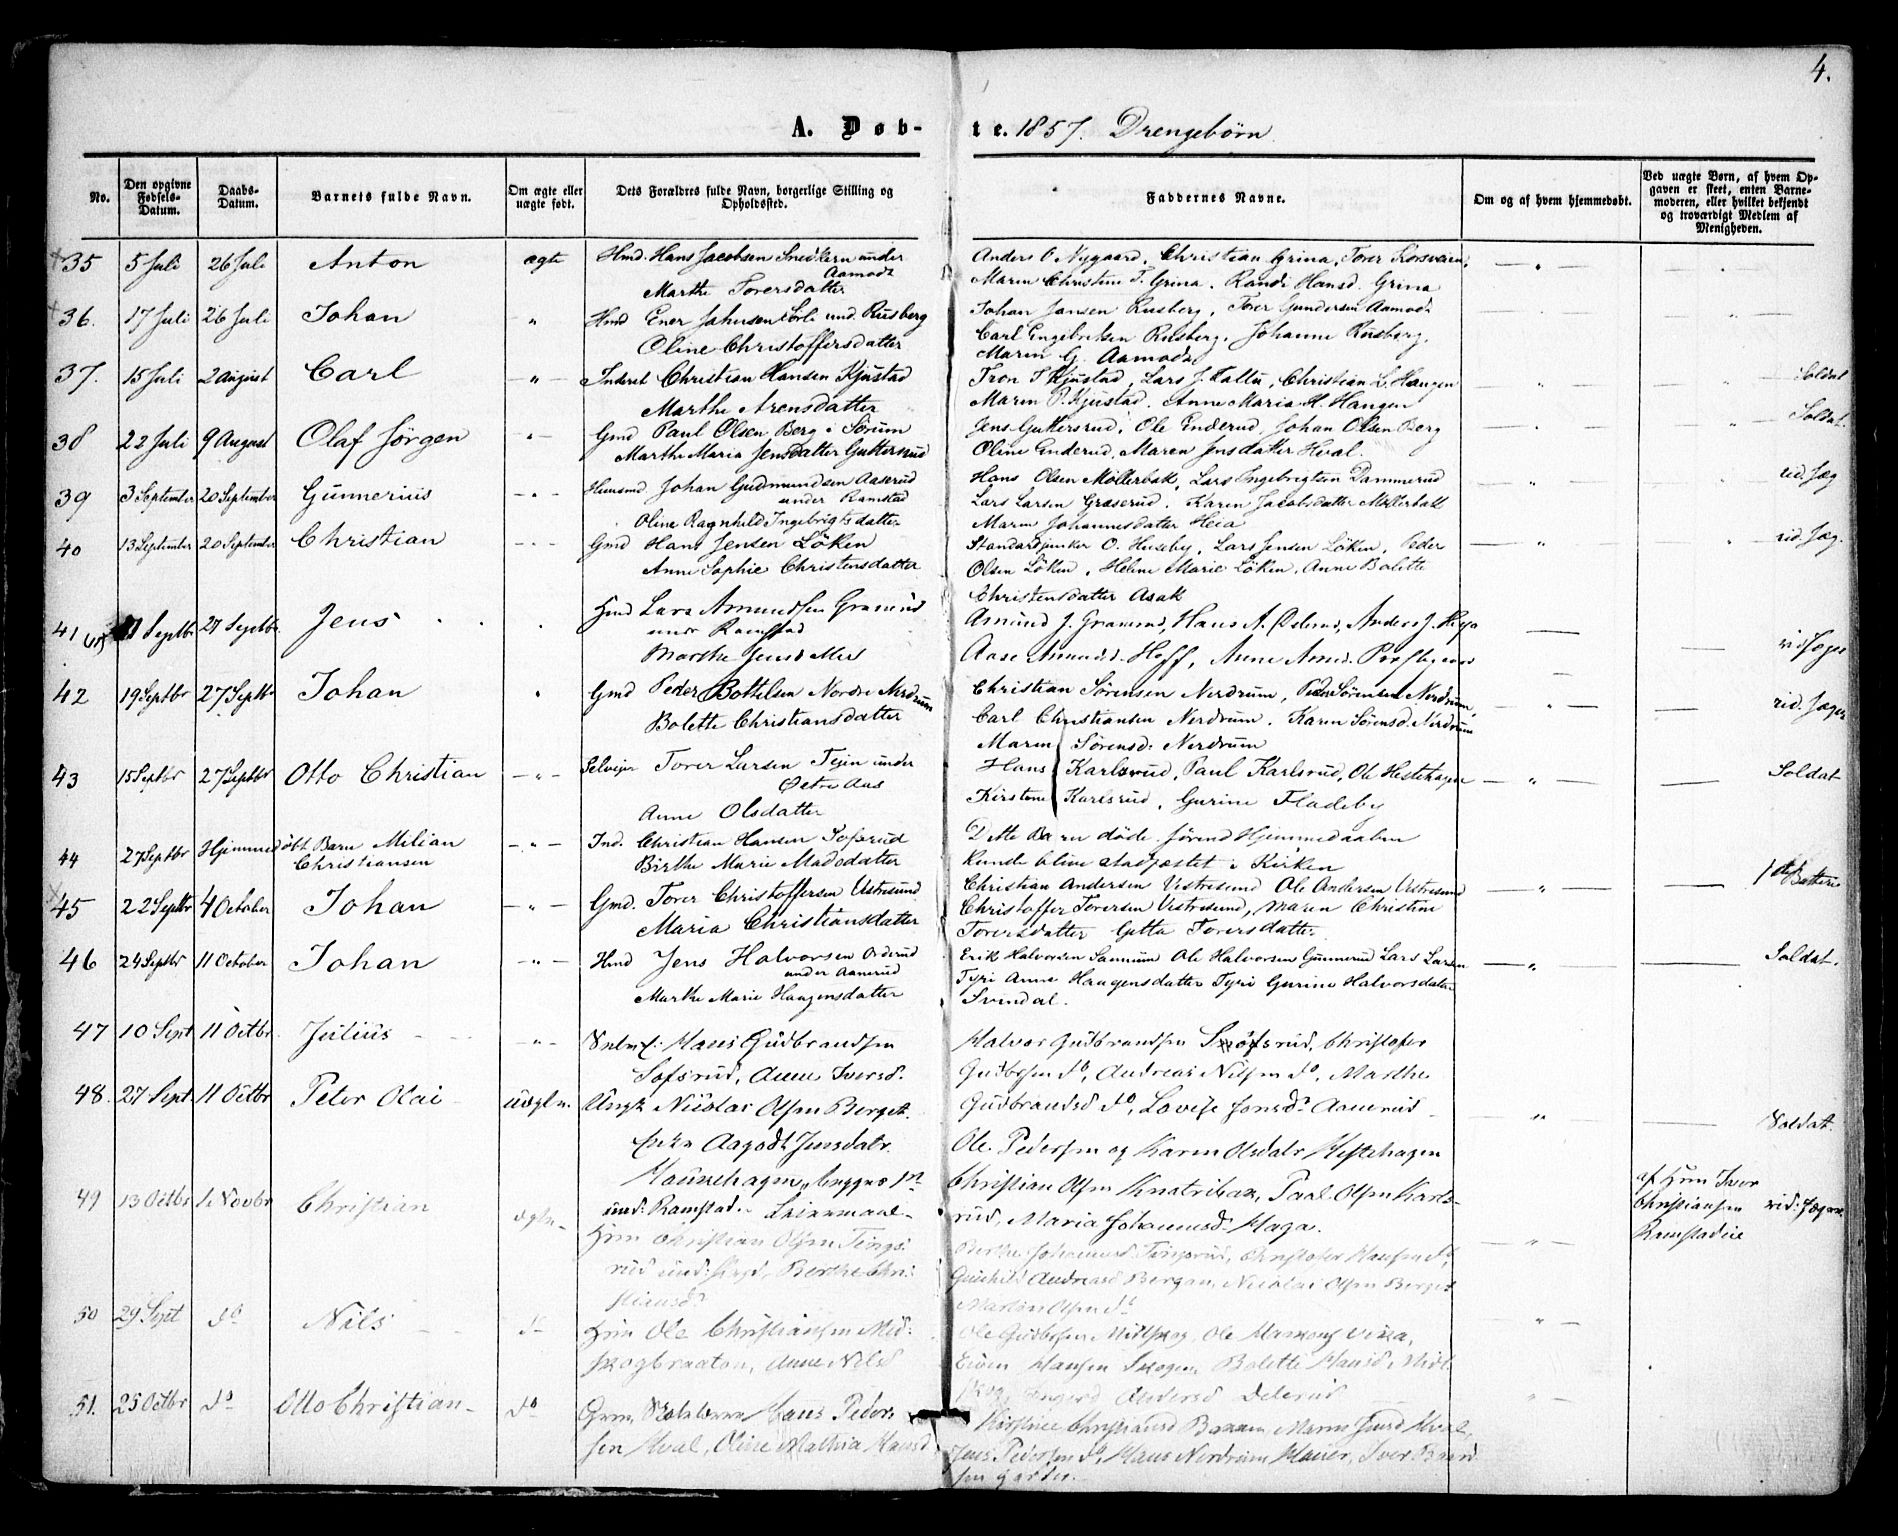 4.
A. Døb-te. 1857. Drengebørn
No.
Den opgivne Fødsels-Datum.
Daabs-Datum.
Barnets fulde Navn.
Om ægte eller uægte født.
Dets Forældres fulde Navn, borgerlige Stilling og Opholdssted.
Faddernes Navne.
Om og af hvem hjemmedøbt.
Ved uægte Børn, af hvem Opgaven er skeet, enten Barnemoderen, eller hvilket bekjendt og troværdigt Medlem af Menigheden.
35 5 Juli 26 Juli Anton ægte Hmd. Hans Jacobsen under Aamodt
Marthe Torersdatter
Anders O Nygaard, Christian Grina, Torer Korsveien,
Maren Christine T. Grina. Randi Hansd. Grina
36. 17 Juli 26 Juli Johan " Hmd Ener Johnsen Sörli und. Rusberg
Oline Christoffersdatter
Johan Jansen Rusberg, Torer Gundersen Aamodt
Carl Engebretsen Rusberg, Johanne Rusberg,
Maren G. Aamodt
37. 15 Juli 2 August Carl - " - Inderst Christian Hansen Kjustad
Marthe Arensdatter
Tron T Kjustad, Lars J. Tallu, Christian L. Haugen
Maren P. Kjustad. Anne Maria H. Haugen
Soldat
38 22 Juli 9 August Olaf Jørgen - " - Gmd Paul Olsen Berg i Sörum
Marthe Maria Jensdatter Guttersrud
Jens Guttersrud, Ole Enderud, Johan Olsen Berg
Oline Enderud, Maren Jensdatter Hval.
Soldat.
39 3 September 20 September Gunnerius - " - Huusmd Johan Gudmundsen Aaserud
under Ramstad
Oline Ragnhild Ingebrigtsdatter
Hans Olsen Møllerbak, Lars Ingebrigtsen Dammerud
Lars Larsen Graserud, Karen Jacobsdatter Møllerbak
Maren Johannesdatter Heia
rid. Jæg
40 13 September 20 September Christian - " - Gmd Hans Jensen Löken
Anne Sophie Christensdatter
Standartjunker O. Huseby, Lars Jensen Löken, Peder
Olsen Löken, Helene Marie Löken, Anne Bolette
Christensdatter Asak
rid. Jæg.
41 Septbr 27 Septbr. Jens Hmd Lars Amundsen Graserud
under Ramstad
Marthe Jensd
Amund J. Graserud, Hans A. Anders J. Heja
Aase Amundsd. Hoff, Anne
rid Jæger
42 19 Septbr 27 Septbr Johan " Gmd Peder Bottelsen Nordre Nerdrum
Bolette Christiansdatter
Christian Sørensen Nerdrum, Peder Sørensen Nerdrum,
Carl Christiansen Nerdrum. Karen Sørensd. Nerdrum
Maren Sørensd. Nerdrum
rid. Jæger
43 15 Septbr 27 Septbr Otto Christian - " - Selveier Torer Larsen Tejen under
Østre Aas
Anne Olsdatter
Hans Karlsrud, Paul Karlsrud, Ole Hestehagen
Kirstine Karlsrud, Gurine Fladeby
Soldat
44 27 Septbr Hjemmedøbt Barn Milian
Christiansen - " - Ind. Christian Hansen Sofsrud
Birthe Marie Madsdatter
Dette Barn døde førend Hjemmedaaben
kunde blive stadfæstet i Kirken
45 22 Septbr 4 October Johan - " - Gmd. Torer Christoffersen Vestresund
Maria Christiansdatter
Christian Andersen Vestresund Ole Andersen Vestresund
Christoffer Torersen Vestresund, Maren Christine
Torersdatter Getta Torersdatter
1ste Batteri
46 24 Septbr 11 October Johan - " - Hmd Jens Halvorsen Orderud
under Aanerud
Marthe Marie Haagensdatter
Erik Halvorsen Sannum Ole Halvorsen Gunnerud Lars Larsen
Tyri Anne Haugensdatter Tyri Gurine Halvorsdatter
Svendal.
Soldat.
47 10 Sept 11 Octbr. Julius - " - Hans Gudbrandsen
Sofsrud, Anne Iversd.
Halvor Gudbrandsen Sofsrud, Christofer
Gudbrsen do, Andreas Nilsen do, Marthe
Gudbrandsd do, Lovise Jonsdr Aanerud
48. 27 Sept 11 Octbr Peter Olai uægte. Ungk Nicolai Olsen Berget.
Aagodt Jensdatr.
Haurehagen, begges
und. Ramstad.
Ole Pedersen og Karen Olsdatr Hestehagen
Christian Olsen Knatribak, Paal Olsen Karlsrud, Maria Johannesd. Haga.
Soldat.
af Hmd Iver
Christiansen
Ramstadeie
49 13 Octbr 1 Novbr Christian ægte Hmd Christian Olsen Tingsrud und: , Berthe Christiansd.
Berthe Johannesd Tingsrud, Christofer Hansen do,
Gunhild Andreasd Bergan, Nicolai Olsen Berget
Martin Olsen do
rid: Jæger
50 29 Sept do Nils do Hmd Ole Christiansen Midskogbraaten, Anne Nilsd
Ole Gudbrsen Midskog, Ole
Even Hansen Skogen, Bolette Hansd Midtskog, Andersd
51. 25 Octbr do Otto Christian do Hans Pedersen Hval, Oline Mathia Hansd
Kirstine Christiansd Maren Hval,
Jens Pedersen do, Hans Nerdrum , Iver